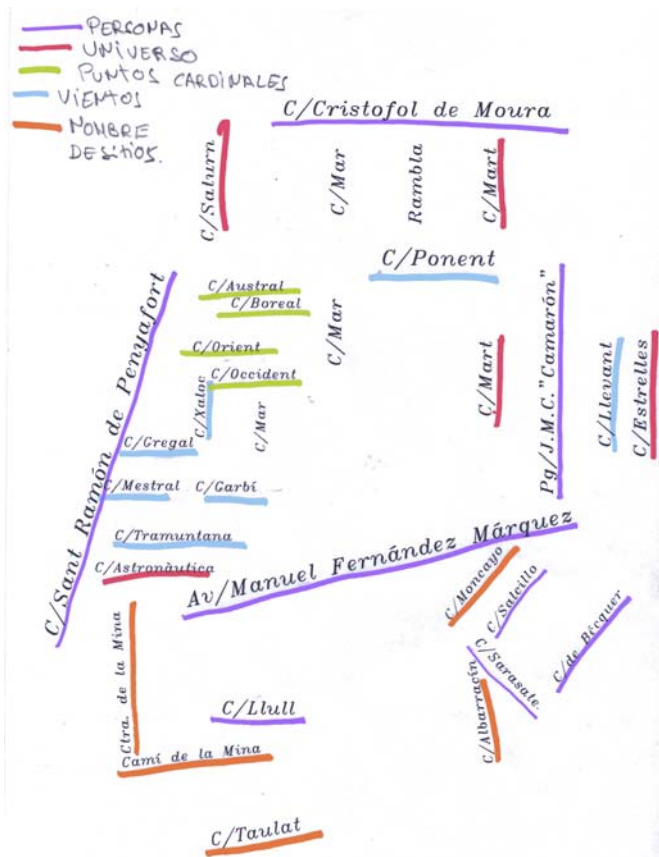 PERSONAS
UNIVERSO
PUNTOS CARDINALES
VIENTOS
NOMBRE
DE SITIOS.
C/Cristofol de Moura
C/Saturn
C/Mar
Rambla
C/Mart
C/Ponent
C/Sant Ramón de Penyafort
C/Austral
C/Boreal
C/Mar
C/Orient
C/Occident
C/Mart
Pg/J.M.C."Camarón"
C/Llevant
C/Estrelles
C/Xaloc
C/Mar
C/Gregal
C/Mestral
C/Garbí
C/Tramuntana
C/Astronàutica
Av/Manuel Fernández Márquez
C/Moncayo
C/Salcillo
C/Sarasate.
C/de Bécquer
C/Albarracín
Ctra. de la Mina
C/Llull
Camí de la Mina
C/Taulat